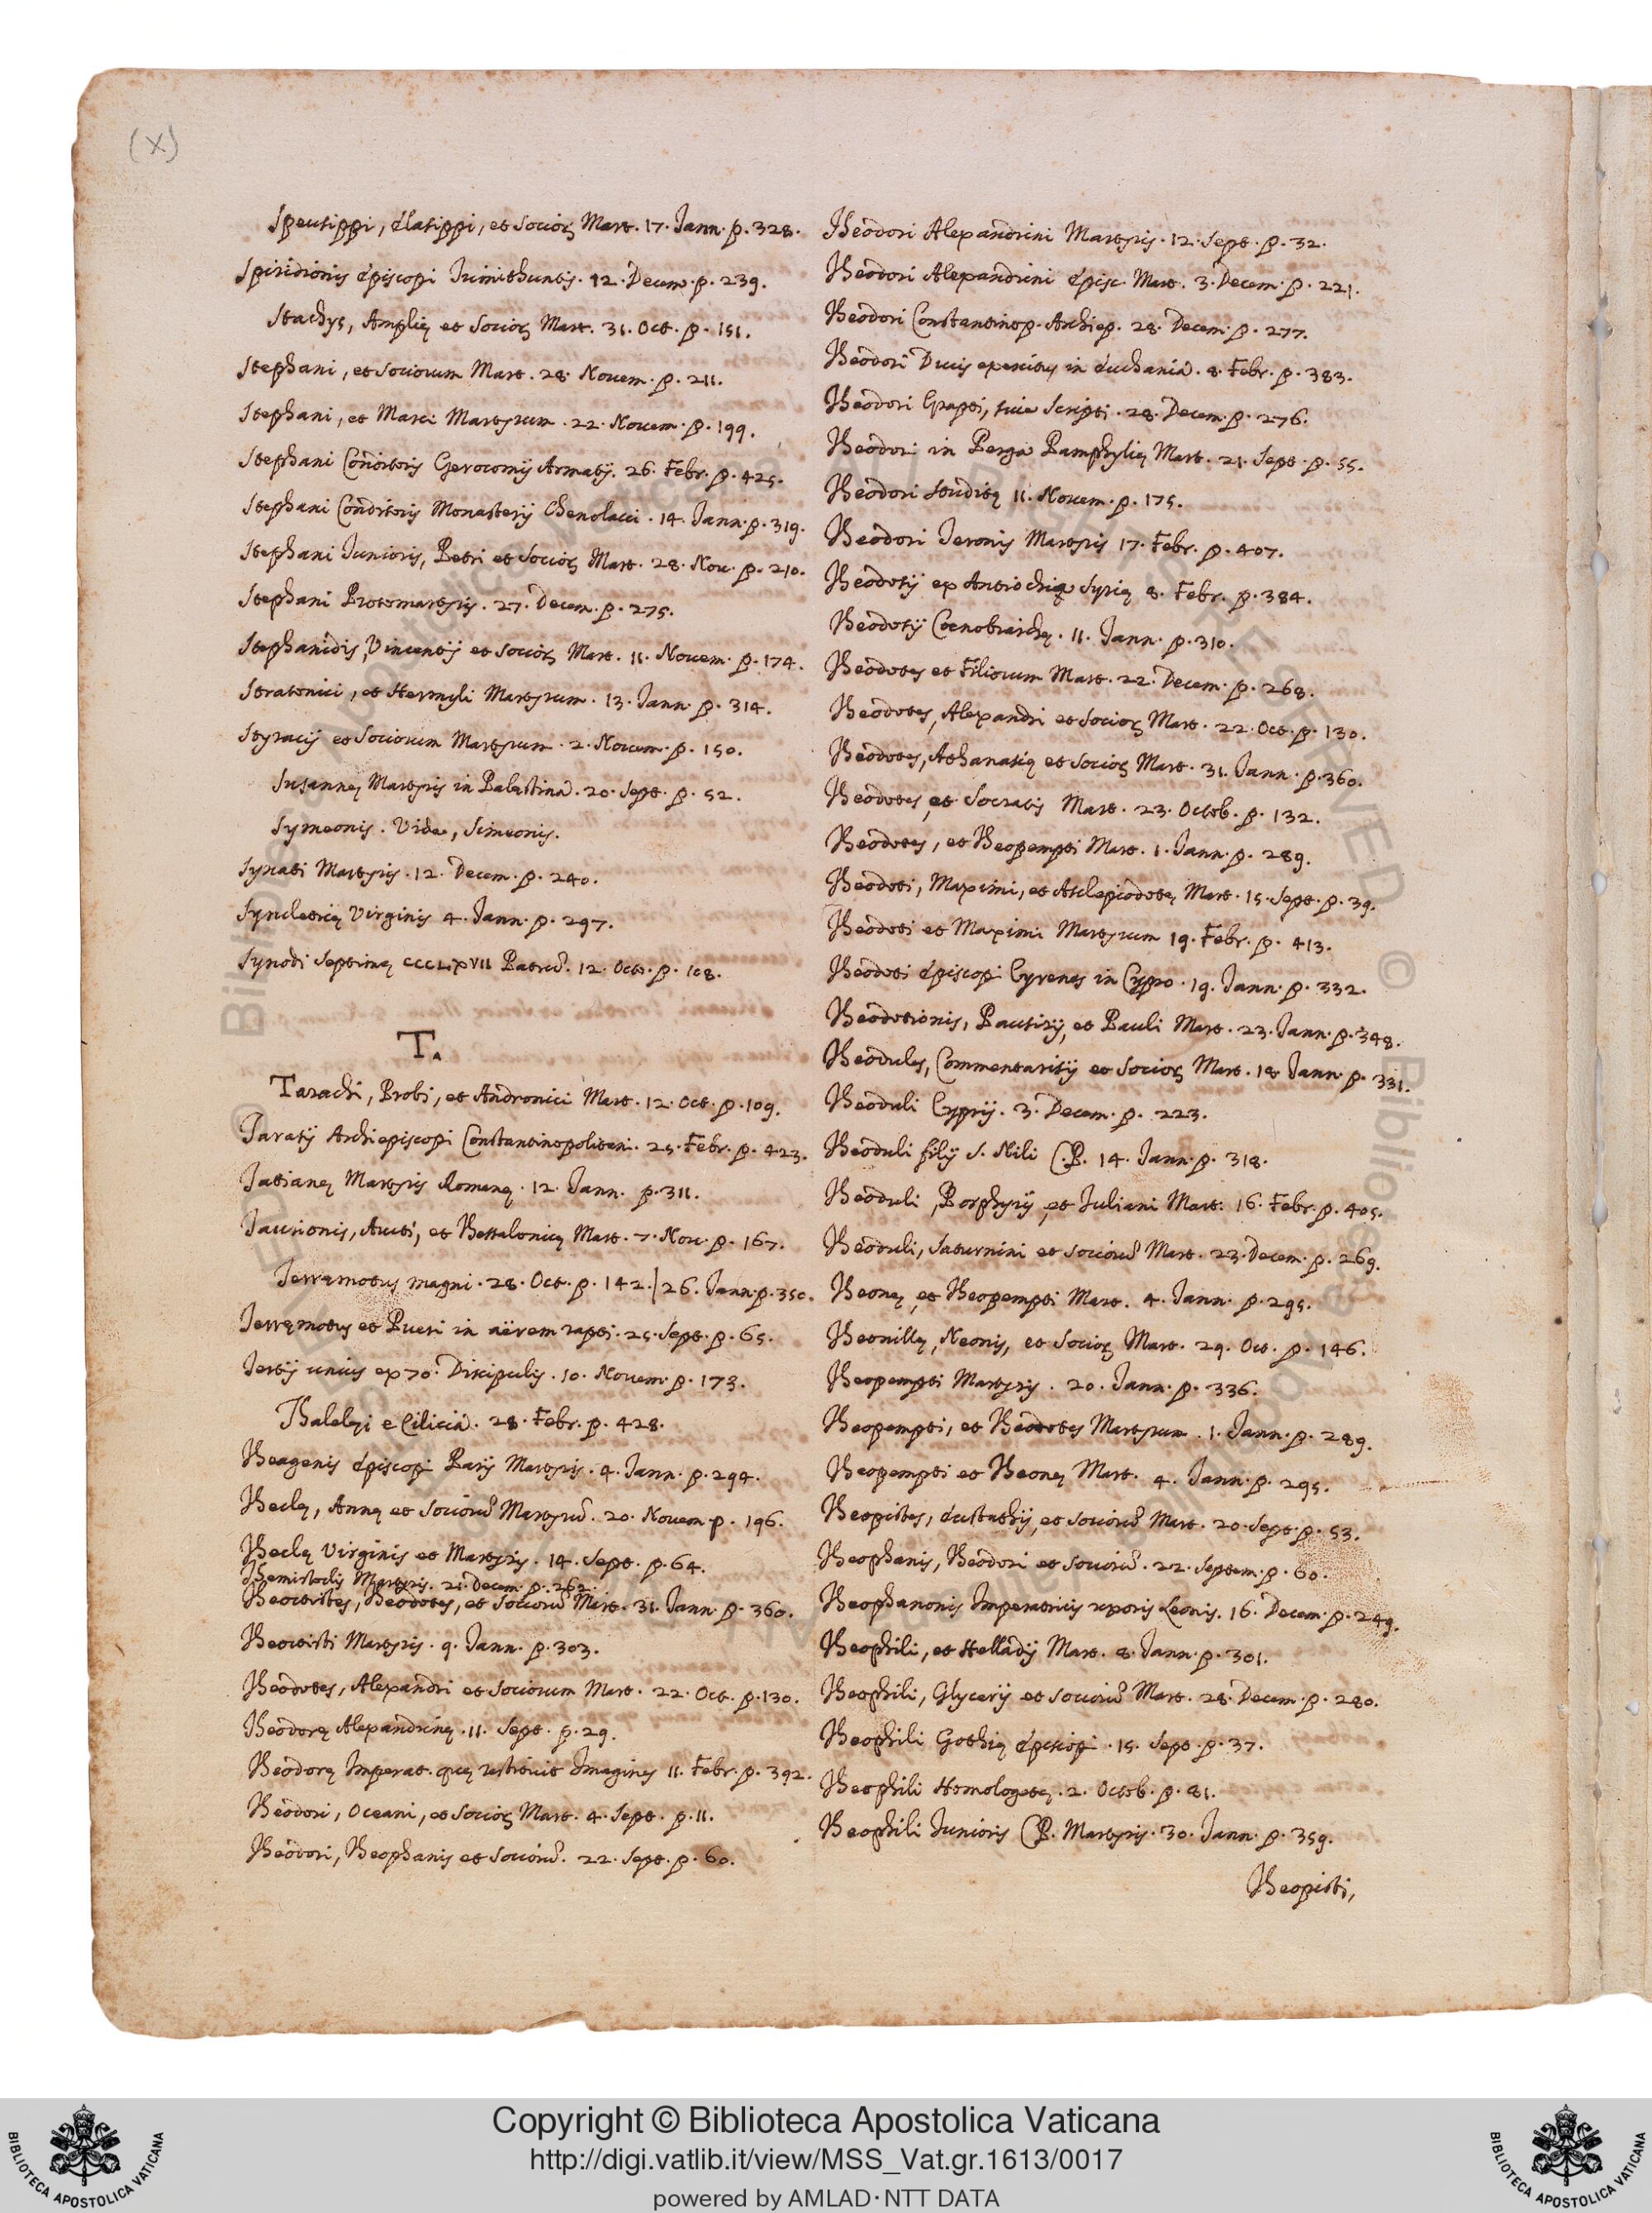 (X)
Speusippi, Elasippi, et Socioꝝ Mart. 17. Jann. p. 328.
Spiridionis Episcopi Trimithuntis. 12. Decem. p. 239.
Stachys, Amplię et Socioꝝ Mart. 31. Oct. p. 151.
Stephani, et Sociorum Mart. 28. Novem. p. 211.
Stephani, et Marci Martyrum. 22. Novem. p. 199.
Stephani Conditoris Gerocomij Armatij. 26. Febr. p. 425.
Stephani Conditoris Monasterij Chenolacci. 14. Jann. p. 319.
Stephani Junioris, Petri et Socioꝝ Mart. 28. Nov. p. 210.
Stephani Protomartyris. 27. Decem. p. 275.
Stephanidis, Vincentij et Socioꝝ Mart. 11. Novem. p. 174.
Stratonici, et Hermyli Martyrum. 13. Jann. p. 314.
Styracij et Sociorum Martyrum. 2. Novem. p. 150.
Susannę Martyris in Palestina. 20. Sept. p. 52.
Symeonis. Vide, Simeonis.
Synati Martyris. 12. Decem. p. 240.
Syncleticę Virginis 4. Jann. p. 297.
Synodi Septimę CCCLXVII Patrũ. 12. Oct. p. 108.
T.
Tarachi, Probi, et Andronici Mart. 12. Oct. p. 109.
Tarasij Archiepiscopi Constantinopolitani. 25. Febr. p. 423.
Tatianę Martyris Romanę. 12. Jann. p. 311.
Taurionis, Aucti, et Thessalonicę Mart. 7. Nov. p. 167.
Terręmotus magni. 28. Oct. p. 142. | 26. Jann. p. 350.
Terręmotus et Pueri in aërem rapti. 25. Sept. p. 65.
Tertij unius ex 70. Discipulis. 10. Novem. p. 173.
Thalelęi e Cilicia. 28. Febr. p. 428.
Theagenis Episcopi Parij Martyris. 4. Jann. p. 294.
Theclę, Annę et Sociorũ Martyrũ. 20. Novem. p. 196.
Theclę Virginis et Martyris. 14. Sept. p. 64.
Themistoclis Martyris. 21. Decem. p. 262.
Theoctistes, Theodotes, et Sociorũ Mart. 31. Jann. p. 360.
Theoctisti Martyris. 9. Jann. p. 303.
Theodotes, Alexandri et Sociorum Mart. 22. Oct. p. 130.
Theodorę Alexandrinę. 11. Sept. p. 29.
Theodorę Imperat. quę restituit Imagines 11. Febr. p. 392.
Theodori, Oceani, et Socioꝝ Mart. 4. Sept. p. 11.
Theodori, Theophanis et Sociorũ. 22. Sept. p. 60.
Theodori Alexandrini Martyris. 12. Sept. p. 32.
Theodori Alexandrini Episc. Mart. 3. Decem. p. 221.
Theodori Constantinop. Archiep. 28. Decem. p. 277.
Theodori Ducis exercitus in Euchania. 8. Febr. p. 383.
Theodori Grapti, sive Scripti. 28. Decem. p. 276.
Theodori in Perga Pamphylię Mart. 21. Sept. p. 55.
Theodori Studitę 11. Novem. p. 175.
Theodori Teronis Martyris 17. Febr. p. 407.
Theodosij ex Antiochia Syrię 8. Febr. p. 384.
Theodosij Coenobiarchę. 11. Jann. p. 310.
Theodotes et Filiorum Mart. 22. Decem. p. 268.
Theodotes, Alexandri et Socioꝝ Mart. 22. Oct. p. 130.
Theodotes, Athanasię et Socioꝝ Mart. 31. Jann. p. 360.
Theodotes, et Socratis Mart. 23. Octob. p. 132.
Theodotes, et Theopempti Mart. 1. Jann. p. 289.
Theodoti, Maximi, et Asclepiodotę, Mart. 15. Sept. p. 39.
Theodoti et Maximi Martyrum 19. Febr. p. 413.
Theodoti Episcopi Cyrenes in Cypro. 19. Jann. p. 332.
Theodotionis, Pausirij, et Pauli Mart. 23. Jann. p. 348.
Theodules, Commentarisij et Socioꝝ Mart. 18 Jann. p. 331.
Theoduli Cyprij. 3. Decem. p. 223.
Theoduli filij S. Nili C.P. 14. Jann. p. 318.
Theoduli, Porphyrij, et Juliani Mart. 16. Febr. p. 405.
Theoduli, Saturnini et Sociorũ Mart. 23. Decem. p. 269.
Theonę, et Theopempti Mart. 4. Jann. p. 295.
Theonillę, Neonis, et Socioꝝ Mart. 29. Oct. p. 146.
Theopempti Martyris. 20. Jann. p. 336.
Theopempti, et Theodotes Martyrum. 1. Jann. p. 289.
Theopempti et Theonę Mart. 4. Jann. p. 295.
Theopistes, Eustathij, et Sociorũ Mart. 20. Sept. p. 53.
Theophanis, Theodori et Sociorũ. 22. Septem. p. 60.
Theophanonis Imperatricis uxoris Leonis. 16. Decem. p. 249.
Theophili, et Helladij Mart. 8. Jann. p. 301.
Theophili, Glycerij et Sociorũ Mart. 28. Decem. p. 280.
Theophili Gothię Episcopi. 15. Sept. p. 37.
Theophili Homologetę. 2. Octob. p. 81.
Theophili Junioris C.P. Martyris. 30. Jann. p. 359.
Theopisti,
Copyright © Biblioteca Apostolica Vaticana
http://digi.vatlib.it/view/MSS_Vat.gr.1613/0017
powered by AMLAD·NTT DATA
BIBLIOTECA APOSTOLICA VATICANA
BIBLIOTECA APOSTOLICA VATICANA